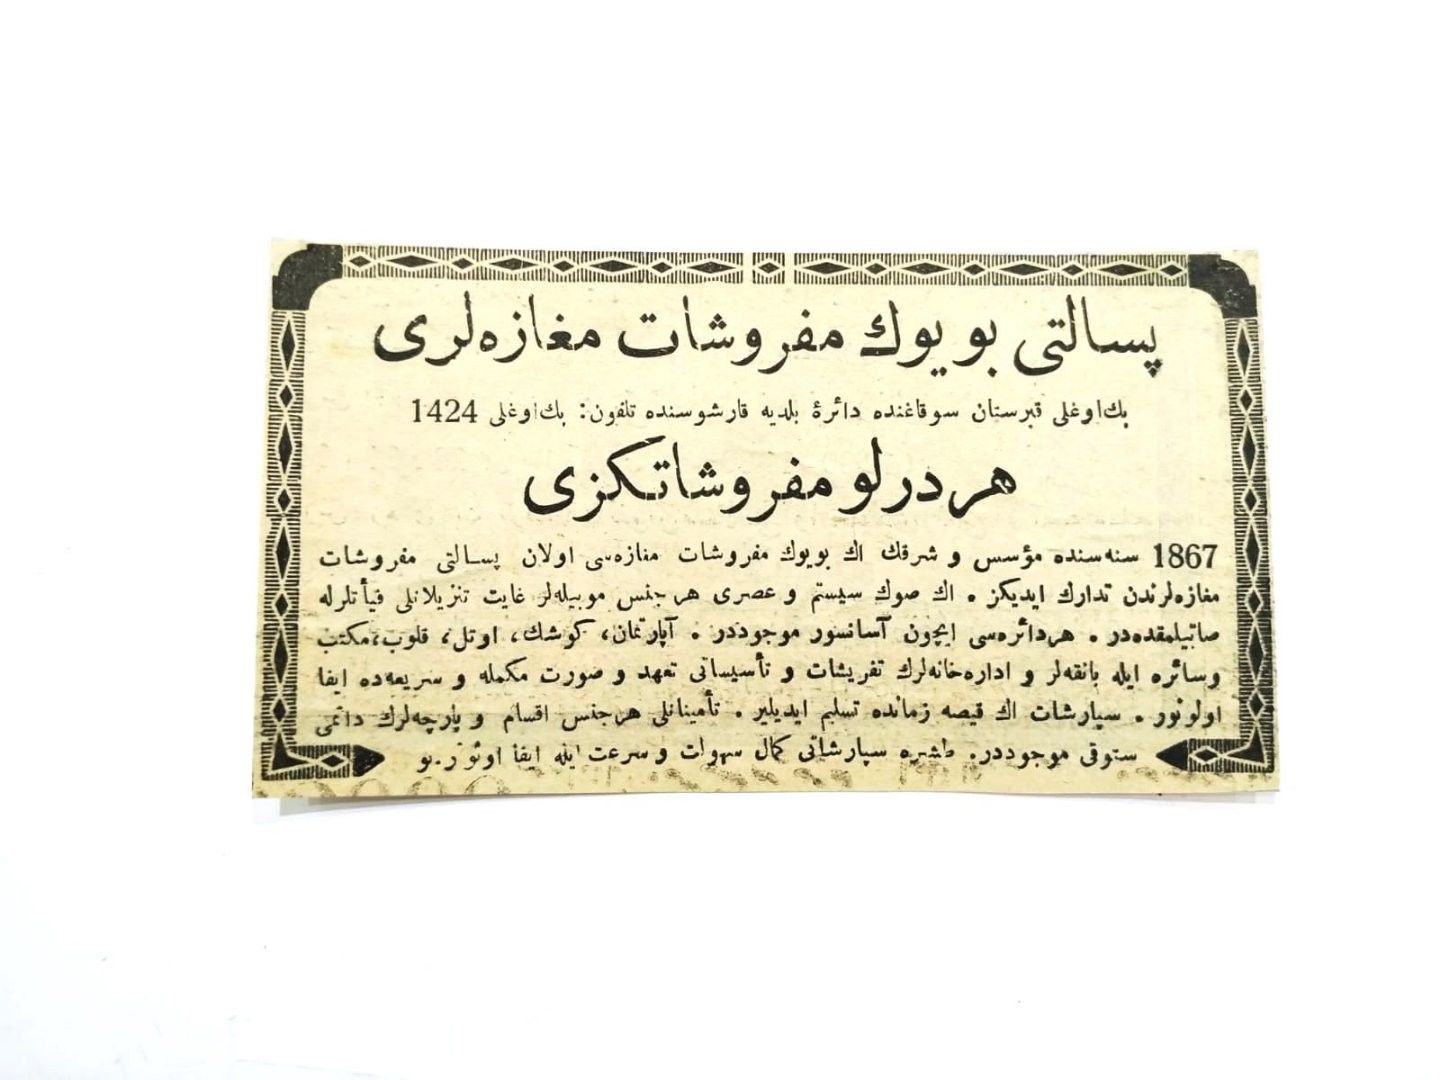 پسالتی بویوك مفروشات مغازه‌لری
بك‌اوغلی قبرستان سوقاغنده دائرۀ بلدیه قارشوسنده تلفون: بك‌اوغلی 1424
هردرلو مفروشاتكزی
1867 سنه‌سنده مؤسس و شرقك اك بویوك مفروشات مغازه‌سی اولان پسالتی مفروشات
مغازه‌لرندن تدارك ایدیكز . اك صوك سیستم و عصری هرجنس موبیله‌لر غایت تنزیلاتلی فیأتلرله
صاتیلمقده‌در . هردائره‌سی ایچون آسانسور موجوددر . آپارتمان، كوشك، اوتل، قلوب،مكتب
وسائره ایله بانقه‌لر و اداره‌خانه‌لرك تفریشات و تأسیساتی تعهد و صورت مكمله و سریعه‌ده ایفا
اولونور . سپارشات اك قیصه زمانده تسلیم ایدیلیر . تأمیناتلی هرجنس اقسام و پارچه‌لرك دائمی
ستوقی موجوددر. طشره سپارشاتی كمال سهولت و سرعت ایله ایفا